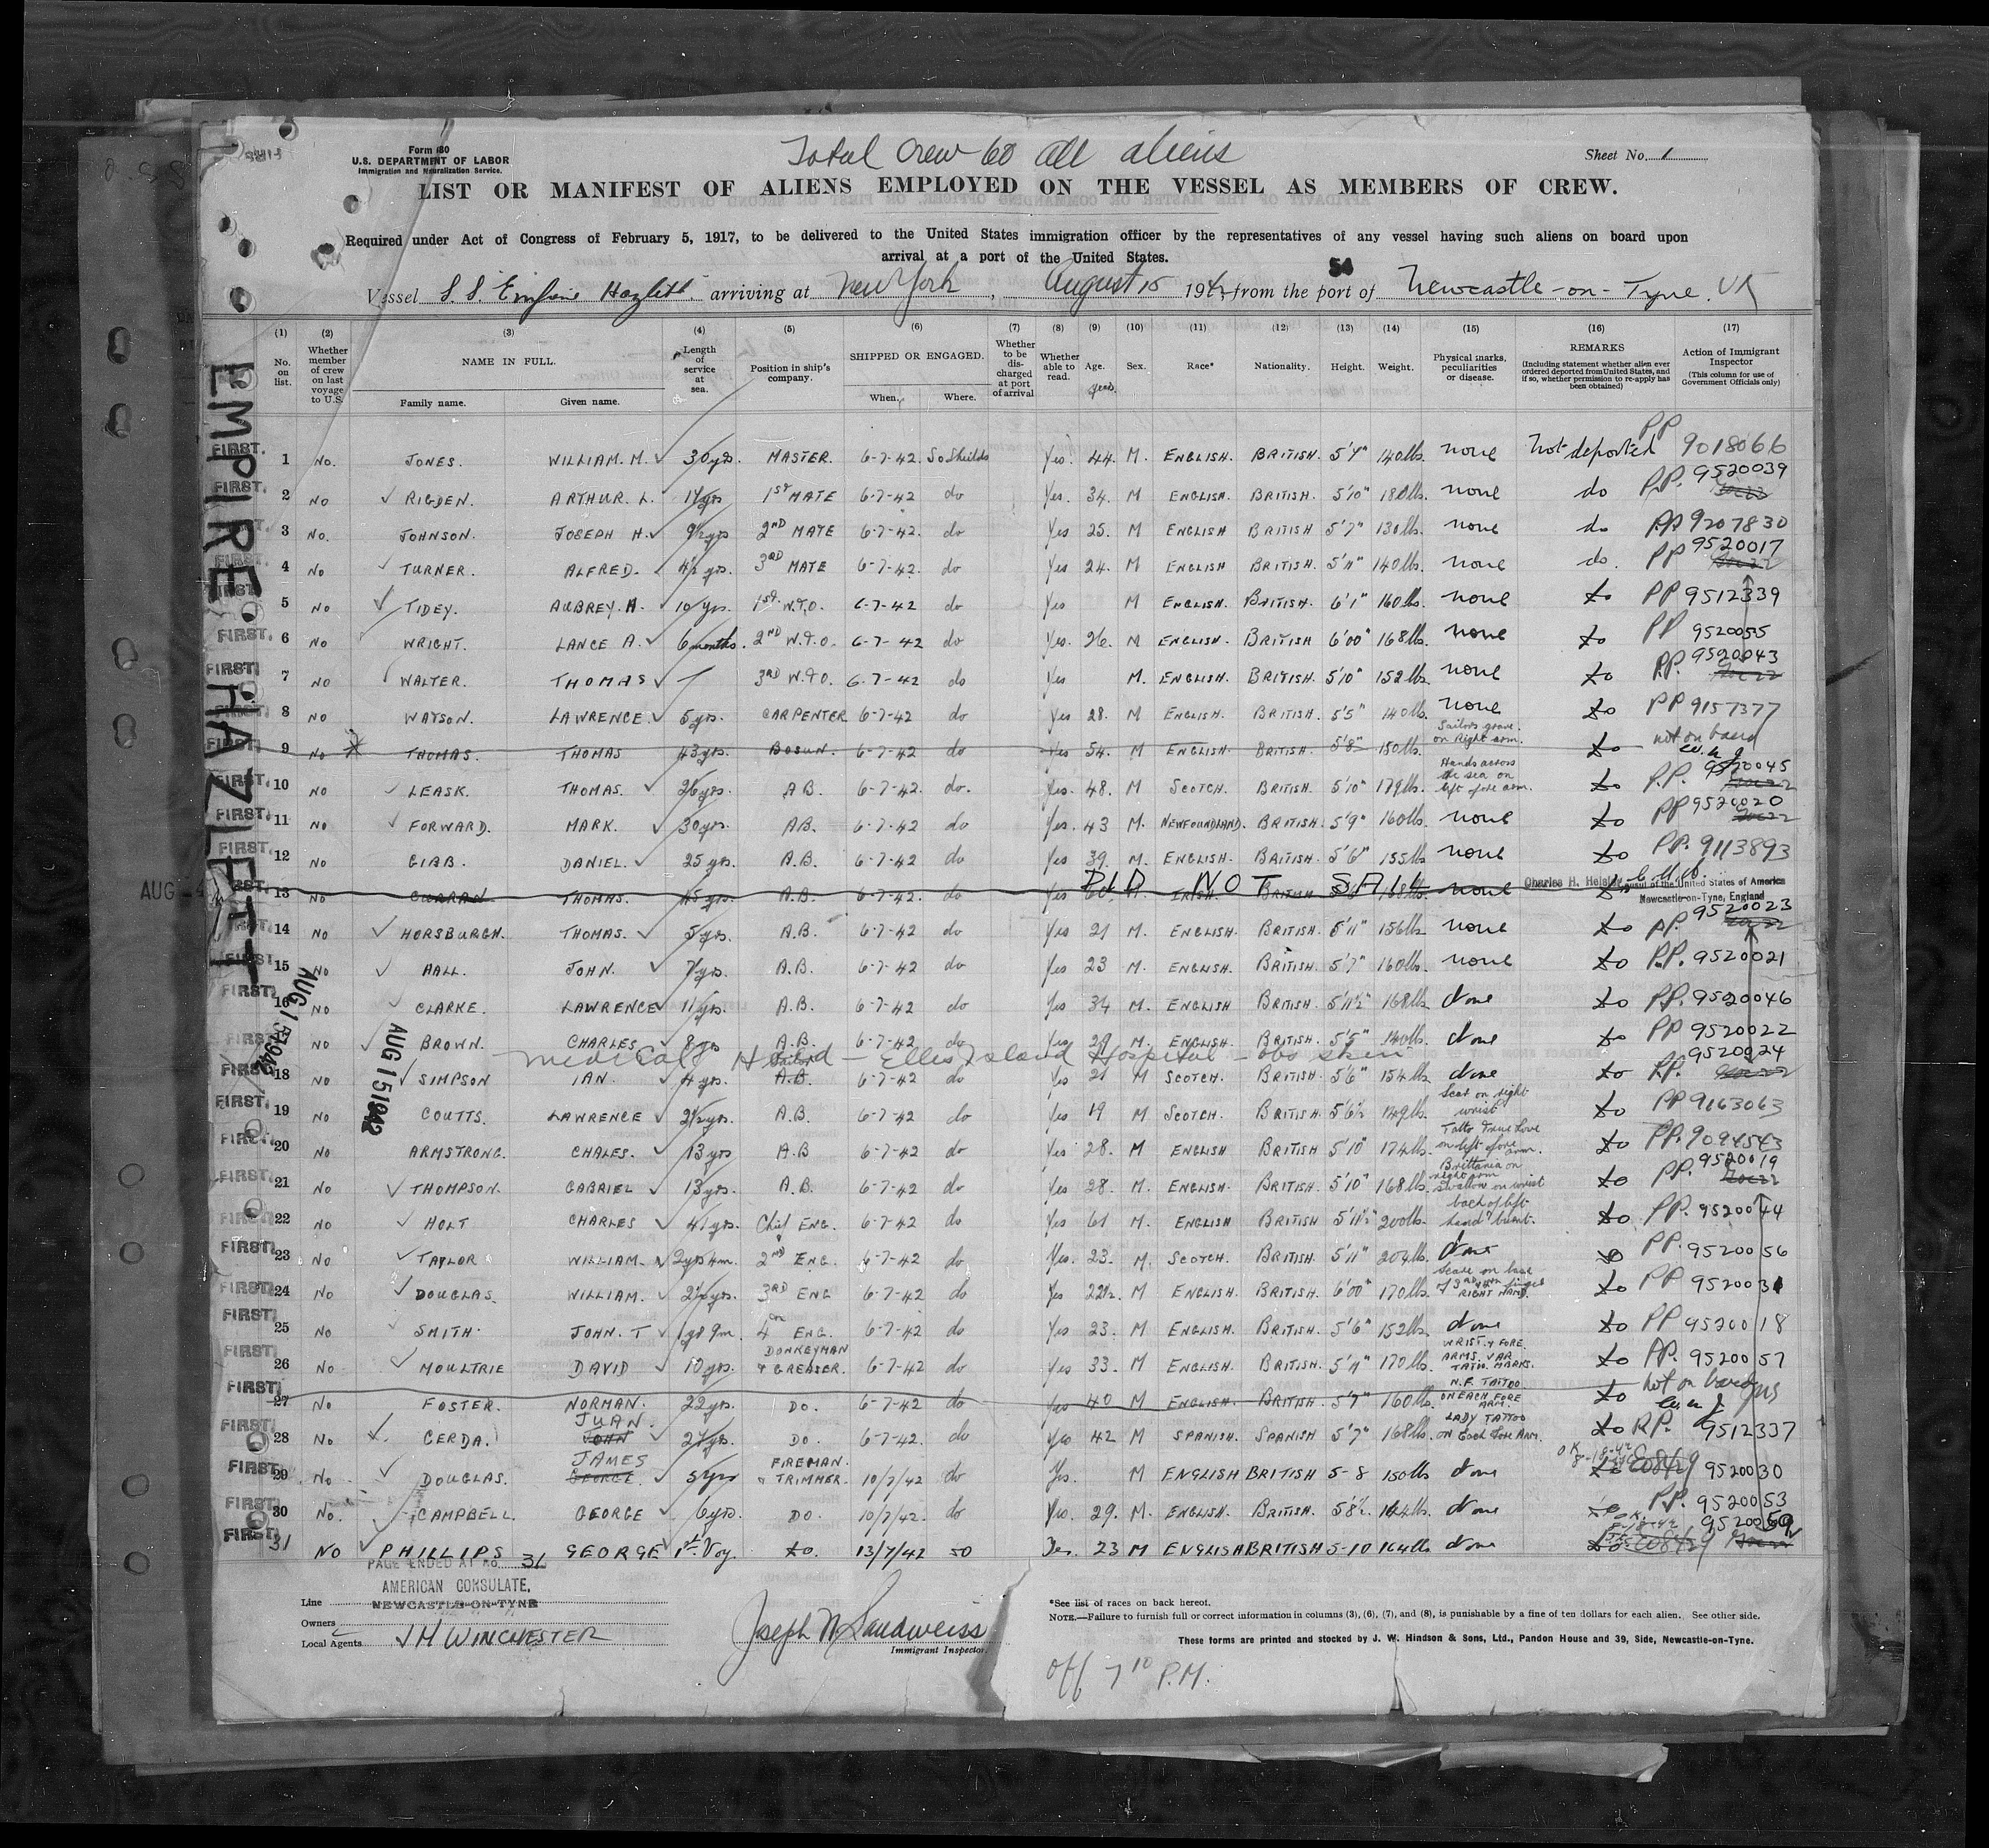 Total Crew 60 all aliens
Form 680
U.S. DEPARTMENT OF LABOR
Immigration and Naturalization Service.
Sheet No. 1
LIST OR MANIFEST OF ALIENS EMPLOYED ON THE VESSEL AS MEMBERS OF CREW.
Required under Act of Congress of February 5, 1917, to be delivered to the United States immigration officer by the representatives of any vessel having such aliens on board upon
arrival at a port of the United States.
54
Vessel S.S. Empire Hazlitt arriving at New York, August 15 1942, from the port of Newcastle-on-Tyne. UK
EMPIRE HAZLETT
(1) (2) (3) (4) (5) (6) (7) (8) (9) (10) (11) (12) (13) (14) (15) (16) (17)
No. on list. Whether member of crew on last voyage to U.S. NAME IN FULL. Family name. Given name. Length of service at sea. Position in ship's company. SHIPPED OR ENGAGED. When. Where. Whether to be discharged at port of arrival Whether able to read. Age. years. Sex. Race* Nationality. Height. Weight. Physical marks, peculiarities or disease. REMARKS (Including statement whether alien ever ordered deported from United States, and if so, whether permission to re-apply has been obtained) Action of Immigrant Inspector (This column for use of Government Officials only)
FIRST. 1 No. JONES. WILLIAM. M. 30 yrs. MASTER. 6-7-42. So Shields Yes. 44. M. ENGLISH. BRITISH. 140 lbs. none Not deported PP 9018066
FIRST. 2 NO RIGDEN. ARTHUR. L. 1ST MATE 6-7-42 do Yes. 34. M ENGLISH. BRITISH. 5'10" 180 lbs. none do PP. 9520039
3 NO. JOHNSON. JOSEPH H. 9½ yrs 2ND MATE 6-7-42. do Yes 25. M ENGLISH BRITISH 5'7" 130 lbs. none do PP 9207830
FIRST. 4 NO TURNER. ALFRED. 4½ yrs. 3RD MATE 6-7-42. do Yes 24. M ENGLISH BRITISH. 5'11" 140 lbs. none do. PP 9520017
5 NO TIDEY. AUBREY. H. 10 yrs. 1st W.T.O. 6-7-42 do Yes M ENGLISH. BRITISH. 6'1" 160 lbs. none do PP 9512339
FIRST. 6 NO WRIGHT. LANCE A. 6 months. 2ND W.T.O. 6-7-42 do Yes. 26. M ENGLISH. BRITISH 6'00" 168 lbs. none do PP 9520055
FIRST. 7 NO WALTER. THOMAS 3RD W.T.O. 6-7-42 do Yes M. ENGLISH. BRITISH. 5'10" 152 lbs. none do PP. 9520043
8 NO WATSON. LAWRENCE. 5 yrs. CARPENTER 6-7-42 do Yes 28. M ENGLISH. BRITISH. 5'5" 140 lbs. none do PP 9157377
9 NO THOMAS. THOMAS 43 yrs. BOSUN. 6-7-42. do Yes 54. M ENGLISH. BRITISH. 5'8" 150 lbs. Sailors grave. on Right arm. do not on board
FIRST. 10 NO LEASK. THOMAS. 26 yrs. A B. 6-7-42. do. Yes. 48. M. SCOTCH. BRITISH. 5'10" 179 lbs. Hands across the sea on left fore arm. do P.P. 9520045
FIRST. 11 NO FORWARD. MARK. 30 yrs. AB. 6-7-42 do Yes. 43 M. NEWFOUNDLAND. BRITISH. 5'9" 160 lbs. none do PP 9520020
FIRST. 12 NO GIBB. DANIEL. 25 yrs. A.B. 6-7-42 do Yes 39. M. ENGLISH. BRITISH. 5'6" 155 lbs none do PP. 9113893
AUG
13 NO CURRAN THOMAS. 45 yrs. A.B. 6-7-42. do Yes IRISH. BRITISH none DID NOT SAIL
Charles H. Heisler
Consul of the United States of America
Newcastle-on-Tyne, England
14 NO HORSBURGH. THOMAS. 5 yrs. A.B. 6-7-42 do Yes 21 M. ENGLISH. BRITISH. 5'11" 156 lbs none do PP. 9520023
15 NO HALL. JOHN. 7 yrs. A.B. 6-7-42 do Yes 23 M. ENGLISH. BRITISH. 5'7" 160 lbs. none do P.P. 9520021
FIRST. 16 NO CLARKE. LAWRENCE 11 yrs. A.B. 6-7-42 do Yes 34 M. ENGLISH BRITISH. 5'11½" 168 lbs. None do PP. 9520046
FIRST. NO BROWN. CHARLES 8 yrs A.B. 6-7-42. do Yes 29 M. ENGLISH BRITISH. 5'5" 140 lbs None do PP 9520022
Medical Held - Ellis Island Hospital - obs skin
FIRST. 18 NO SIMPSON IAN. 4 yrs. A.B. 6-7-42 do Yes 21 M SCOTCH. BRITISH. 5'6" 154 lbs None do PP. 9520024
AUG 15 1942
AUG 15 1942
FIRST. 19 NO COUTTS. LAWRENCE 2½ yrs. A.B. 6-7-42 do Yes 19 M SCOTCH. BRITISH. 5'6½ 149 lbs. Scar on right wrist do PP 9163063
FIRST. 20 NO ARMSTRONG. CHALES. 13 yrs A.B 6-7-42 do Yes 28. M ENGLISH BRITISH 5'10" 174 lbs. Tatto True Love on left fore arm. do PP. 9094543
FIRST. 21 NO THOMPSON. GABRIEL 13 yrs. A.B. 6-7-42 do Yes 28. M. ENGLISH. BRITISH. 5'10" 168 lbs. Brittania on right arm Swallow on wrist do PP. 9520019
FIRST. 22 NO HOLT CHARLES 41 yrs. Chief ENG. 6-7-42 do Yes 61 M. ENGLISH BRITISH 5'11½" 200 lbs. back of left hand burnt. do PP. 9520044
FIRST. 23 NO TAYLOR WILLIAM. 2 yrs 4 m. 2ND ENG. 6-7-42 do Yes. 23. M. SCOTCH. BRITISH. 5'11" 204 lbs. None do PP. 9520056
FIRST. 24 NO DOUGLAS. WILLIAM. 2½ yrs. 3RD ENG 6-7-42 do Yes 22½. M ENGLISH. BRITISH. 6'00" 170 lbs. Scare on base of 3rd & 4th finger RIGHT HAND. do PP 9520031
FIRST 25 NO SMITH. JOHN. T 1 yr 9 m. 4 ENG. 6-7-42 do Yes 23. M ENGLISH. BRITISH. 5'6" 152 lbs None do PP 9520018
FIRST 26 NO MOULTRIE DAVID 10 yrs. DONKEYMAN & GREASER. 6-7-42 do Yes 33. M ENGLISH. BRITISH. 5'11" 170 lbs. WRIST & FORE ARMS. VAR. TATO. MARKS. do PP. 9520057
FIRST 27 NO FOSTER. NORMAN. 22 yrs. DO. 6-7-42 do Yes 40 M ENGLISH BRITISH. 5'7" 160 lbs. N.F. TATTOO ON EACH FORE ARM. do not on board
FIRST 28 NO CERDA. JUAN. JOHN 27 yrs. DO. 6-7-42. do Yes 42 M SPANISH. SPANISH 5'7" 168 lbs. LADY TATTOO ON Each Fore Arm. do P.P. 9512337
FIRST. 29 NO. DOUGLAS. JAMES GEORGE 5 yrs FIREMAN. & TRIMMER. 10/7/42 do Yes. M ENGLISH BRITISH 5-8 150 lbs None OK 9520030
FIRST. 30 NO. CAMPBELL. GEORGE 6 yrs. DO. 10/7/42. do Yes. 29. M. ENGLISH. BRITISH. 5'8½. 144 lbs None do P.P. 9520053
FIRST. 31 NO PHILLIPS GEORGE 1st. Voy. do. 13/7/42 Yes. 23 M ENGLISH BRITISH 5-10 164 lbs None OK
PAGE ENDED AT No. 31
AMERICAN CONSULATE,
NEWCASTLE-ON-TYNE
Line
Owners
Local Agents J H WINCHESTER
Joseph N Landweiss
Immigrant Inspector.
*See list of races on back hereof.
NOTE.—Failure to furnish full or correct information in columns (3), (6), (7), and (8), is punishable by a fine of ten dollars for each alien. See other side.
These forms are printed and stocked by J. W. Hindson & Sons, Ltd., Pandon House and 39, Side, Newcastle-on-Tyne.
Off 7 10 P.M.